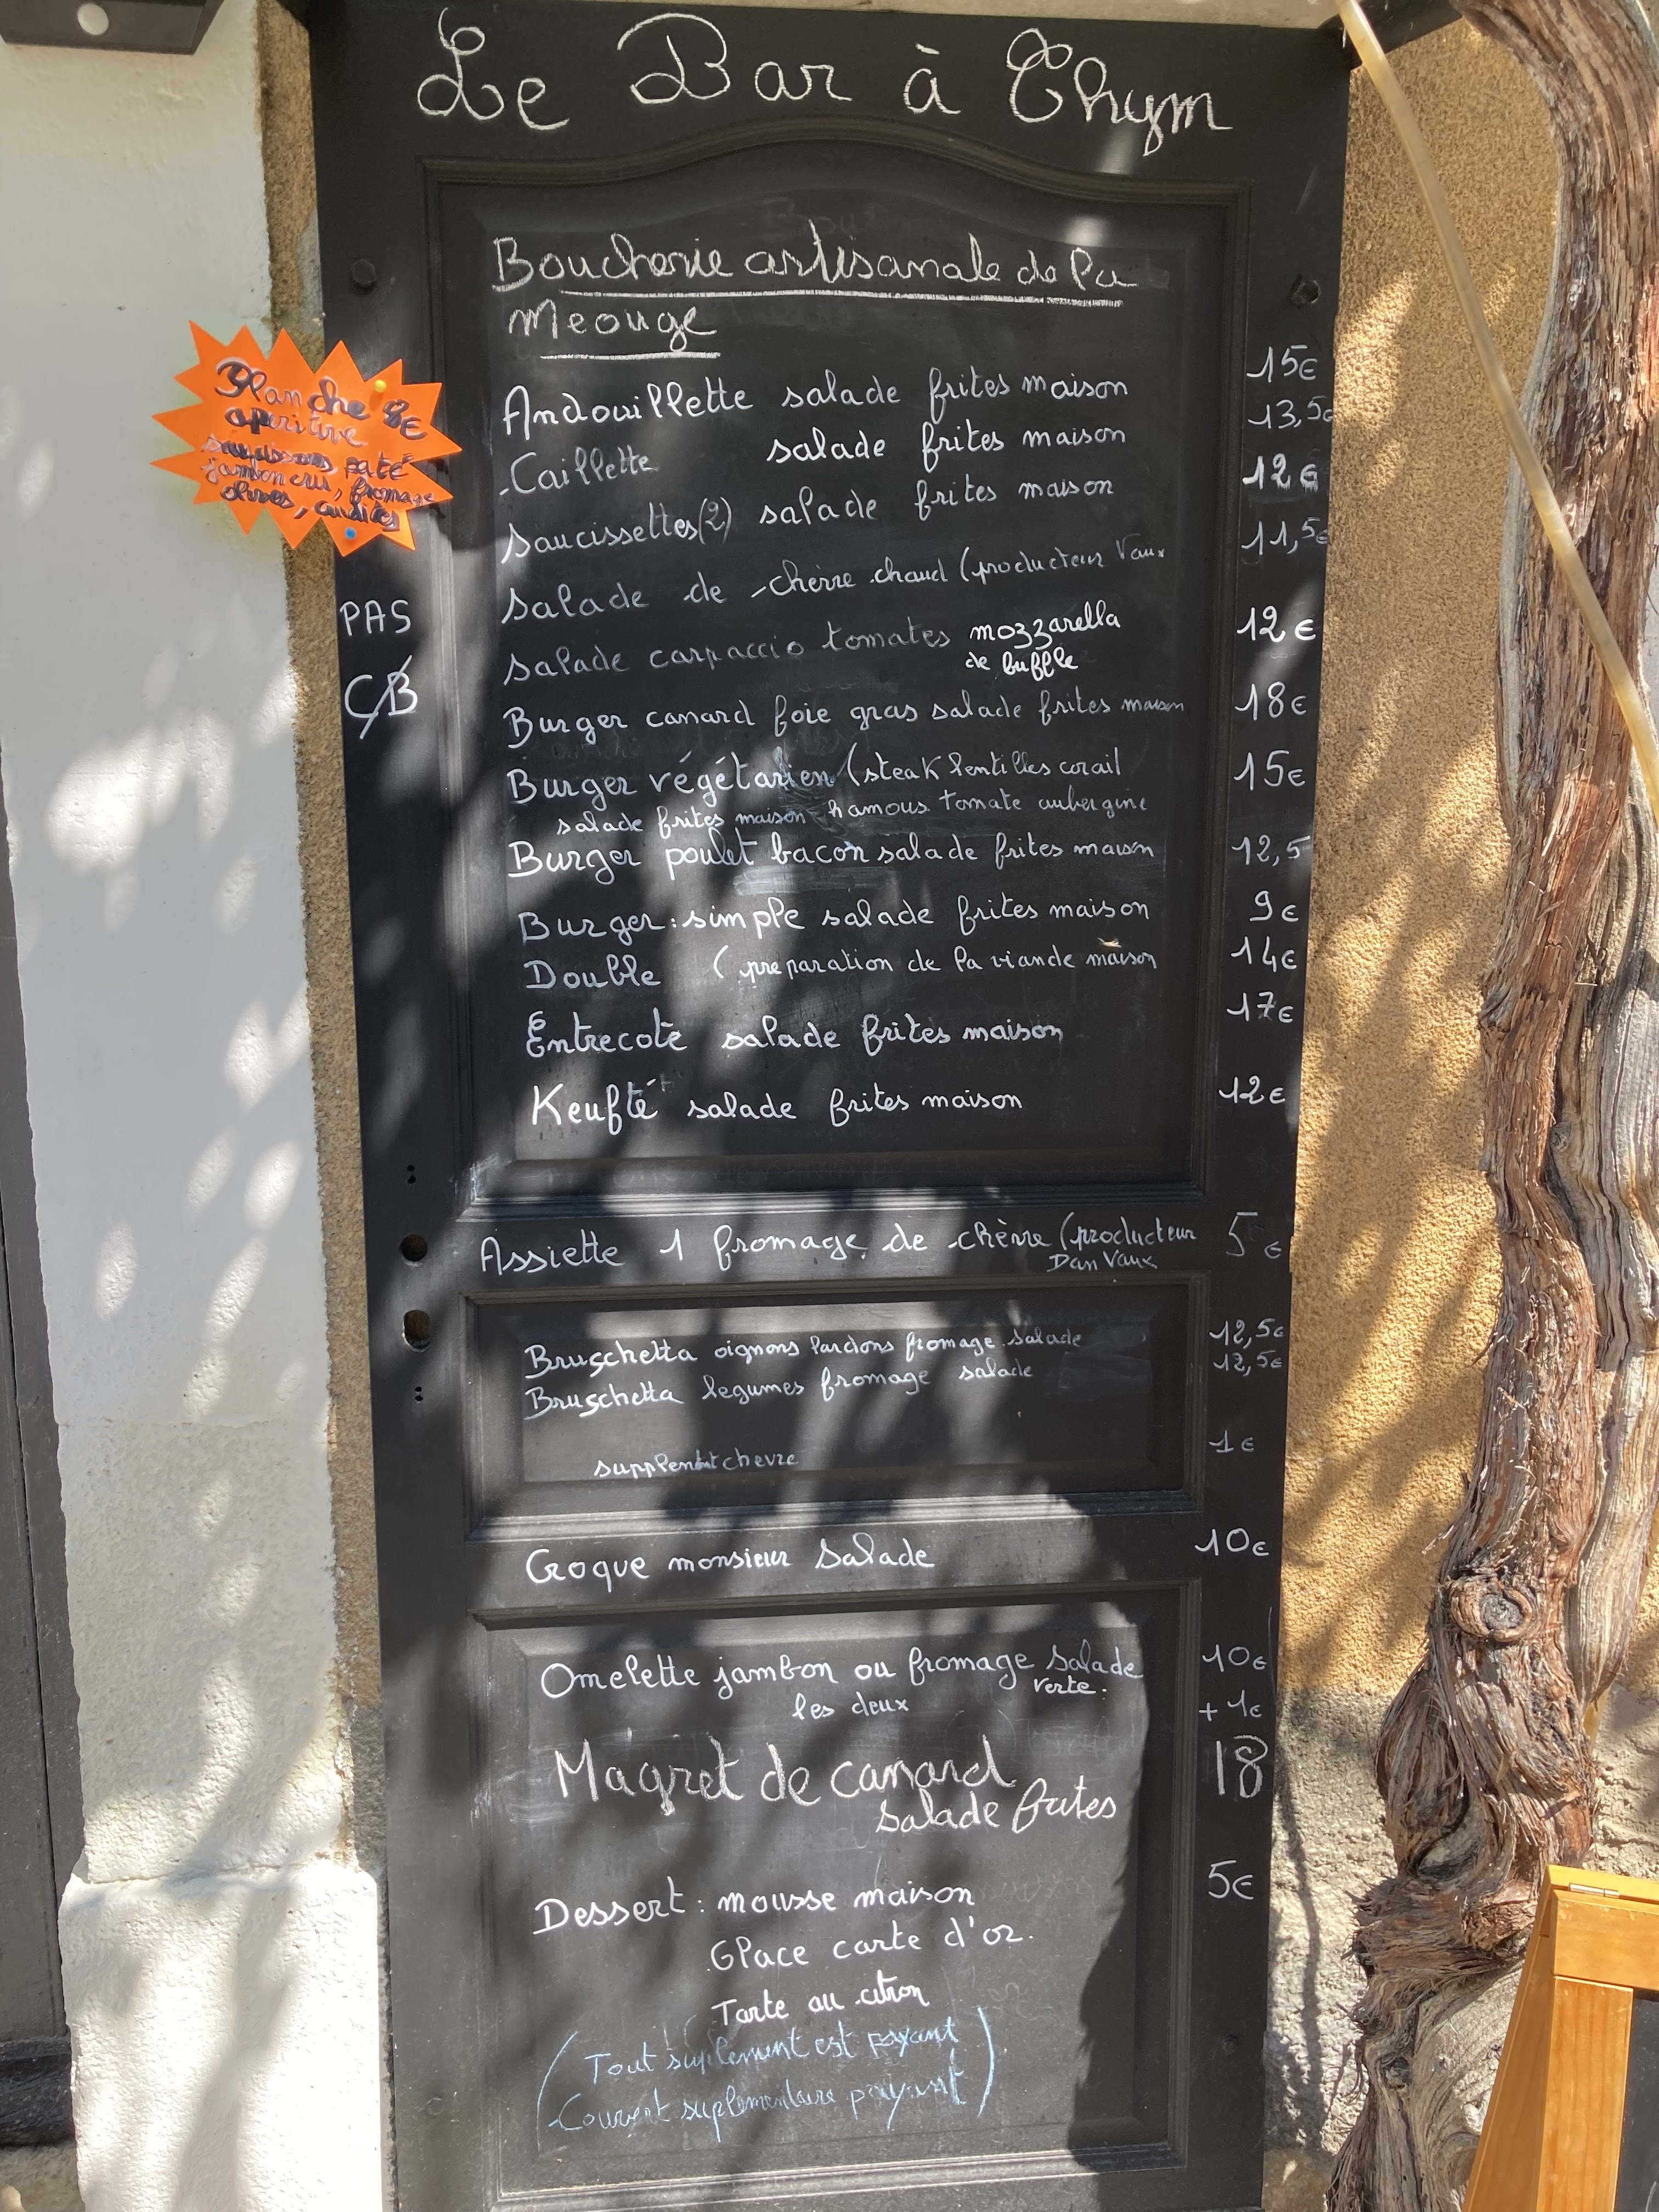 Le Bar à Thym
Boucherie artisanale de la
Meouge
Andouillette salade frites maison 15€
Caillette salade frites maison 13,5€
Saucissettes(2) salade frites maison 12€
Salade de chèvre chaud (producteur Vaux 11,5€
Salade carpaccio tomates mozzarella 12€
de buffle
Burger canard foie gras salade frites maison 18€
Burger végétarien (steak lentilles corail 15€
salade frites maison hamous tomate aubergine
Burger poulet bacon salade frites maison 12,5
Burger: simple salade frites maison 9€
Double (preparation de la viande maison 14€
Entrecote salade frites maison 17€
Keufté salade frites maison 12€
Assiette 1 fromage de chèvre (producteur 5€
Dan Vaux
Bruschetta oignons lardons fromage salade 12,5€
Bruschetta legumes fromage salade 12,5€
chevre 1€
Croque monsieur salade 10€
Omelette jambon ou fromage salade 10€
verte.
les deux + 1€
Magret de canard 18
salade frites
Dessert: mousse maison 5€
Glace carte d'or.
Tarte au citron
(Tout suplement est payant
Couvert suplementaire payant)
Planche 8€
aperitive
saucissons paté
jambon cru, fromage
olives,
PAS
CB